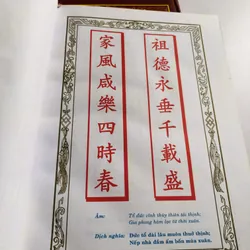 祖德永垂千載盛
家風咸樂四時春
Âm: Tổ đức vĩnh thùy thiên tải thịnh;
Gia phong hàm lạc tứ thời xuân.
Dịch nghĩa: Đức tổ dài lâu muôn thuở thịnh;
Nếp nhà đầm ấm bốn mùa xuân.